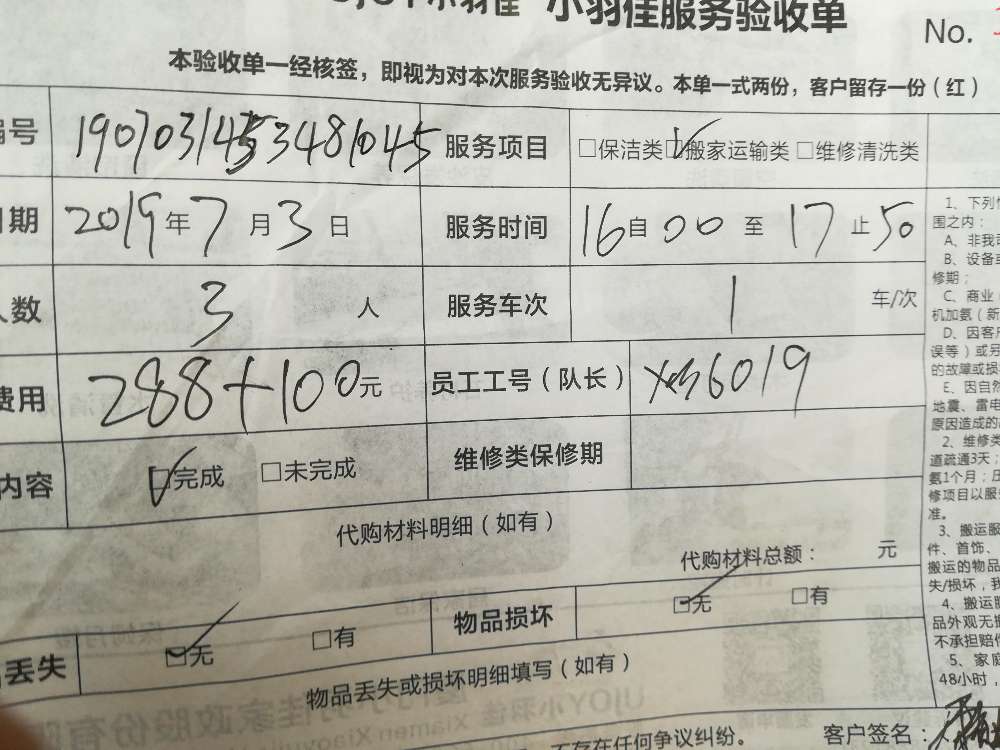 小羽佳 小羽佳服务验收单
No.
本验收单一经核签，即视为对本次服务验收无异议。本单一式两份，客户留存一份（红）
号 19070314533481045 服务项目 □保洁类 ☑搬家运输类 □维修清洗类
期 2019年7月3日 服务时间 16自00至17止50
人数 3人 服务车次 1 车/次
费用 288+100元 员工工号（队长） 6019
内容 ☑完成 □未完成 维修类保修期
代购材料明细（如有）
代购材料总额： 元
丢失 ☑无 □有 物品损坏 ☑无 □有
物品丢失或损坏明细填写（如有）
不存在任何争议纠纷。 客户签名：
1、下列
围之内：
A、非我
B、设备或
修期；
C、商业
机加氨（新
D、因客户
误等）或另
的故障或损
E、因自然
地震、雷电
原因造成的
2、维修类
道疏通3天；
氨1个月；
修项目以服
准。
3、搬运服
件、首饰、
搬运的物品
失/损坏，我
4、搬运
品外观无
不承担赔
5、家庭
48小时，